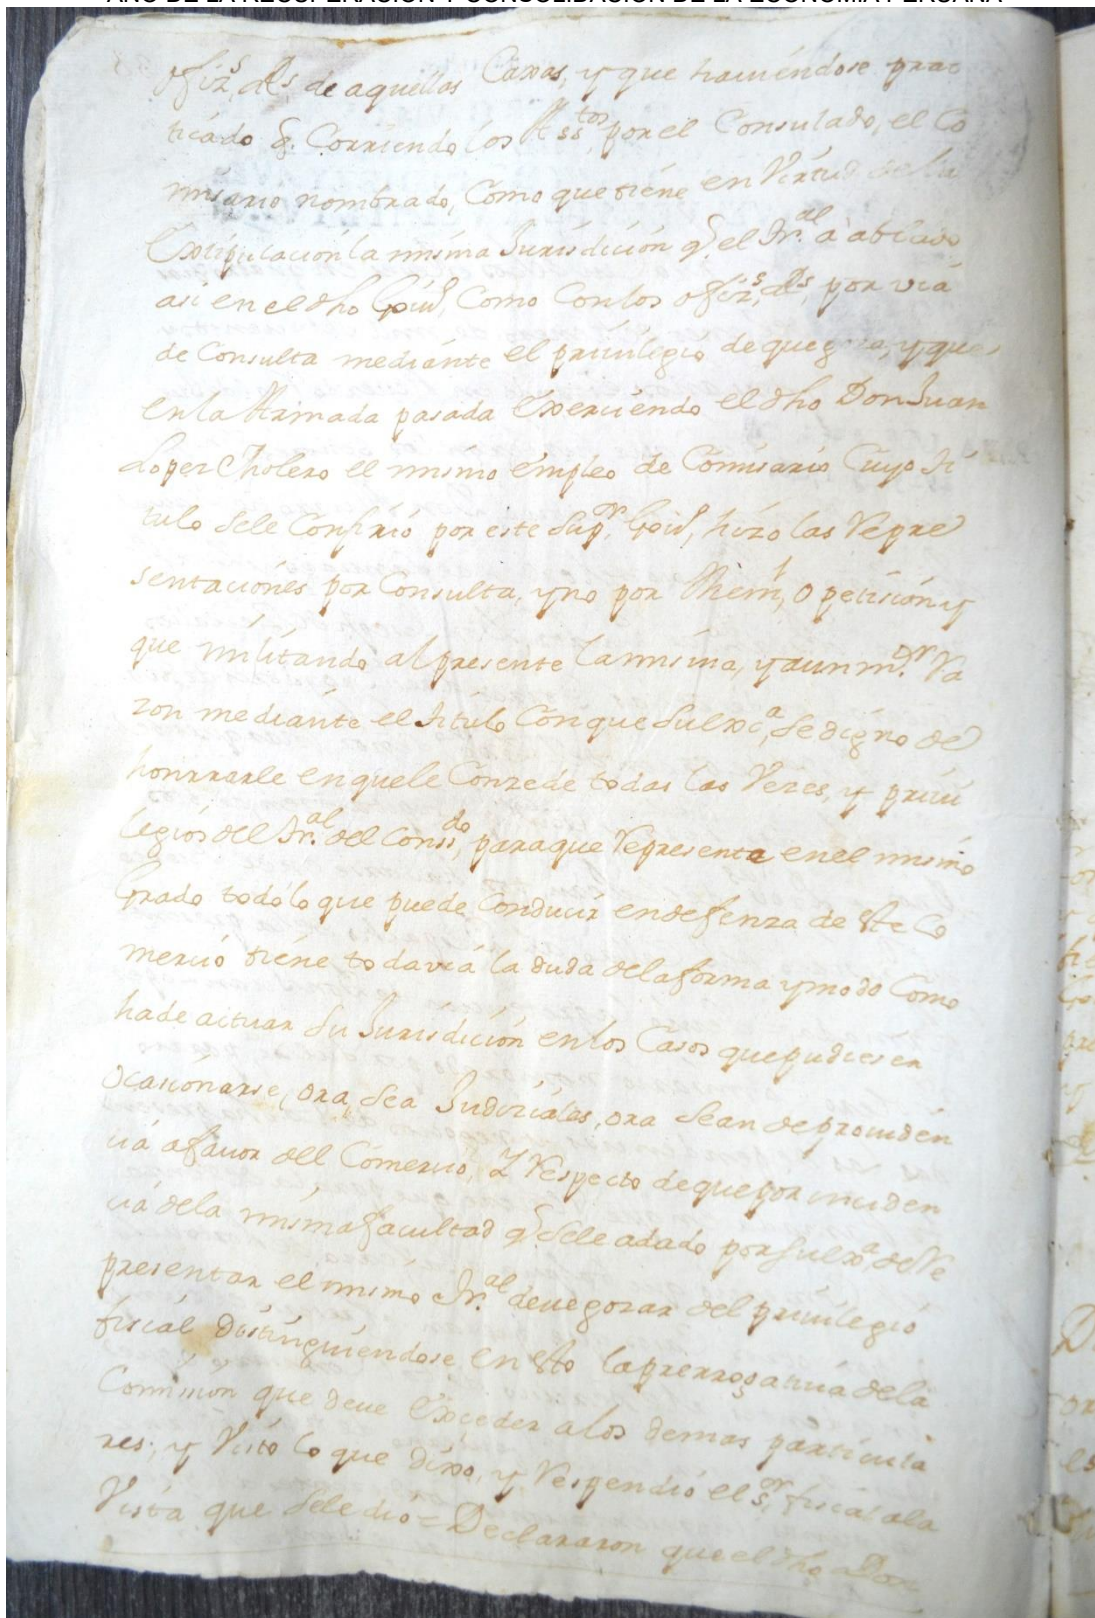 AÑO DE LA RECUPERACIÓN Y CONSOLIDACIÓN DE LA ECONOMÍA PERUANA
ofiz.s Rs de aquellas Caxas, y que haviéndose prac
ticado q. Corriendo los Asstos, por el Consulado, el Co
misario nombrado, Como que tiene en Virtud de la
Extipulación la misma Jurisdición q.e el Tri.al a ablado
asi en el dho Gov.no Como Con los ofiz.s Rs, por via
de Consulta mediante el privilegio de que goza, y que
en la Armada pasada Exerciendo el dho Don Juan
Lopez Tholero el mismo empleo de Comisario Cuyo ti
tulo se le Confirió por este Sup.or Gov.no, hizo las Repre
sentaciones por Consulta, y no por Mem.l, o petición y
que militando al presente la misma, y aun m.or Ra
zon mediante el titulo Con que Su Exc.a, se digno de
honrrarle en que le Conzede todas las Vezes, y privi
legios del Tri.al del Conss.do, para que Represente en el mismo
Grado todo lo que puede Conducir en defenza de este Co
mercio tiene todavia la duda de la forma y modo Como
ha de actuar Su Jurisdición en los Casos que pudiesen
Ocasionarse, ora, Sea Judiziales, ora Sean de providen
cia a favor dell Comercio, Y Respecto de que por inciden
cia de la misma facultad q.e Se le a dado por Su Ex.a de Re
presentar el mismo Tri.al deve gozar del privilegio
fiscal distinguiendose, en esto la prerrogativa de la
Comision que deve Exceder a los demas particula
res; y Visto lo que dixo, y Respondió el S.or fiscal a la
Vista que Se le dió = Declararon que el dho Don